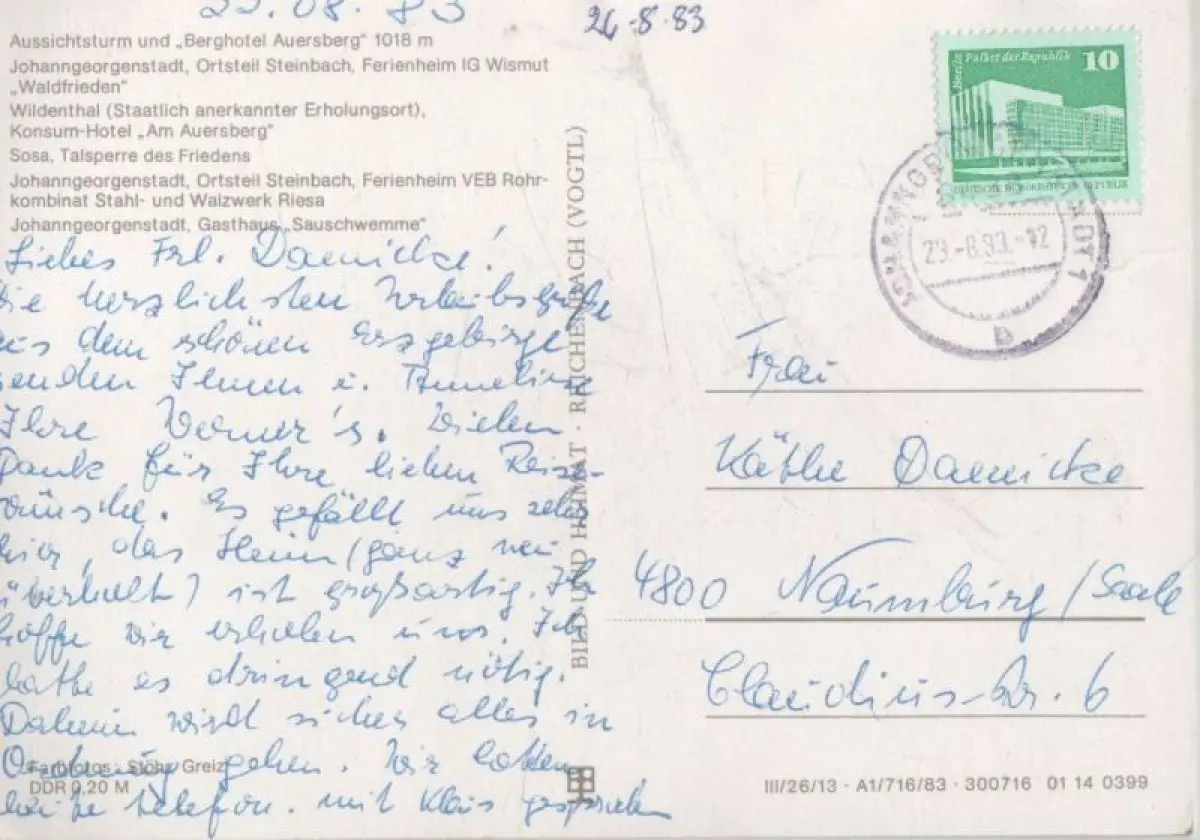 22.08.83
24-8-83
Aussichtsturm und „Berghotel Auersberg" 1018 m
Johanngeorgenstadt, Ortsteil Steinbach, Ferienheim IG Wismut
„Waldfrieden"
Wildenthal (Staatlich anerkannter Erholungsort),
Konsum-Hotel „Am Auersberg"
Sosa, Talsperre des Friedens
Johanngeorgenstadt, Ortsteil Steinbach, Ferienheim VEB Rohr-
kombinat Stahl- und Walzwerk Riesa
Johanngeorgenstadt, Gasthaus „Sauschwemme"
Liebes Frl. Daenicke!
die herzlichsten Urlaubsgrüße
aus dem schönen Erzgebirge
senden Ihnen u. Anneliese
Ihre Werner's. Vielen
Dank für Ihre lieben Reise-
wünsche. Es gefällt uns sehr
hier, das Heim (ganz neu
überholt) ist großartig. Ich
hoffe wir erholen uns. Ich
hatte es dringend nötig.
Daheim wird sicher alles in
Ordnung gehen. Wir hatten
heute telefon. mit Klaus gesprochen
Farbfotos: Stöhr, Greiz
DDR 0,20 M
BILD UND HEIMAT · REICHENBACH (VOGTL)
Berlin Palast der Republik 10
23.-8.83.-12
b
Frau
Käthe Daenicke
4800 Naumburg/Saale
Claudius-Str. 6
III/26/13 · A1/716/83 · 300716 01 14 0399